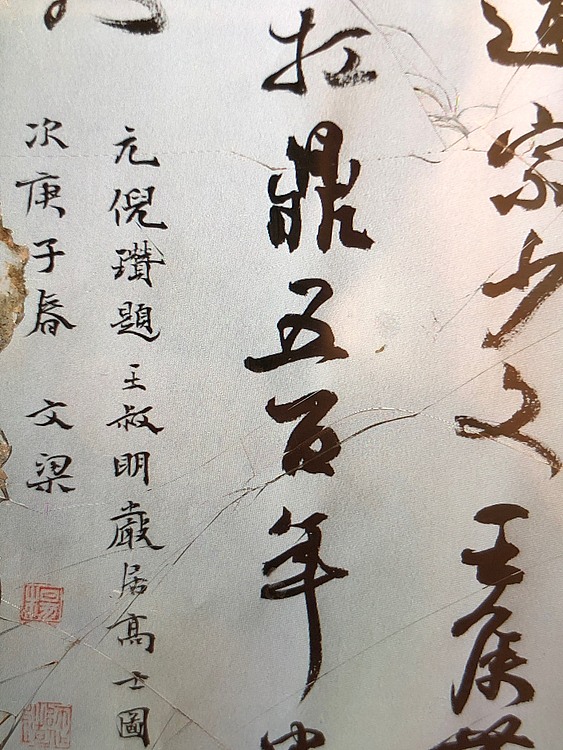 道宗少文王侯
扛鼎五百年
元倪瓚題王叔明嚴居高士圖
次庚子春 文梁